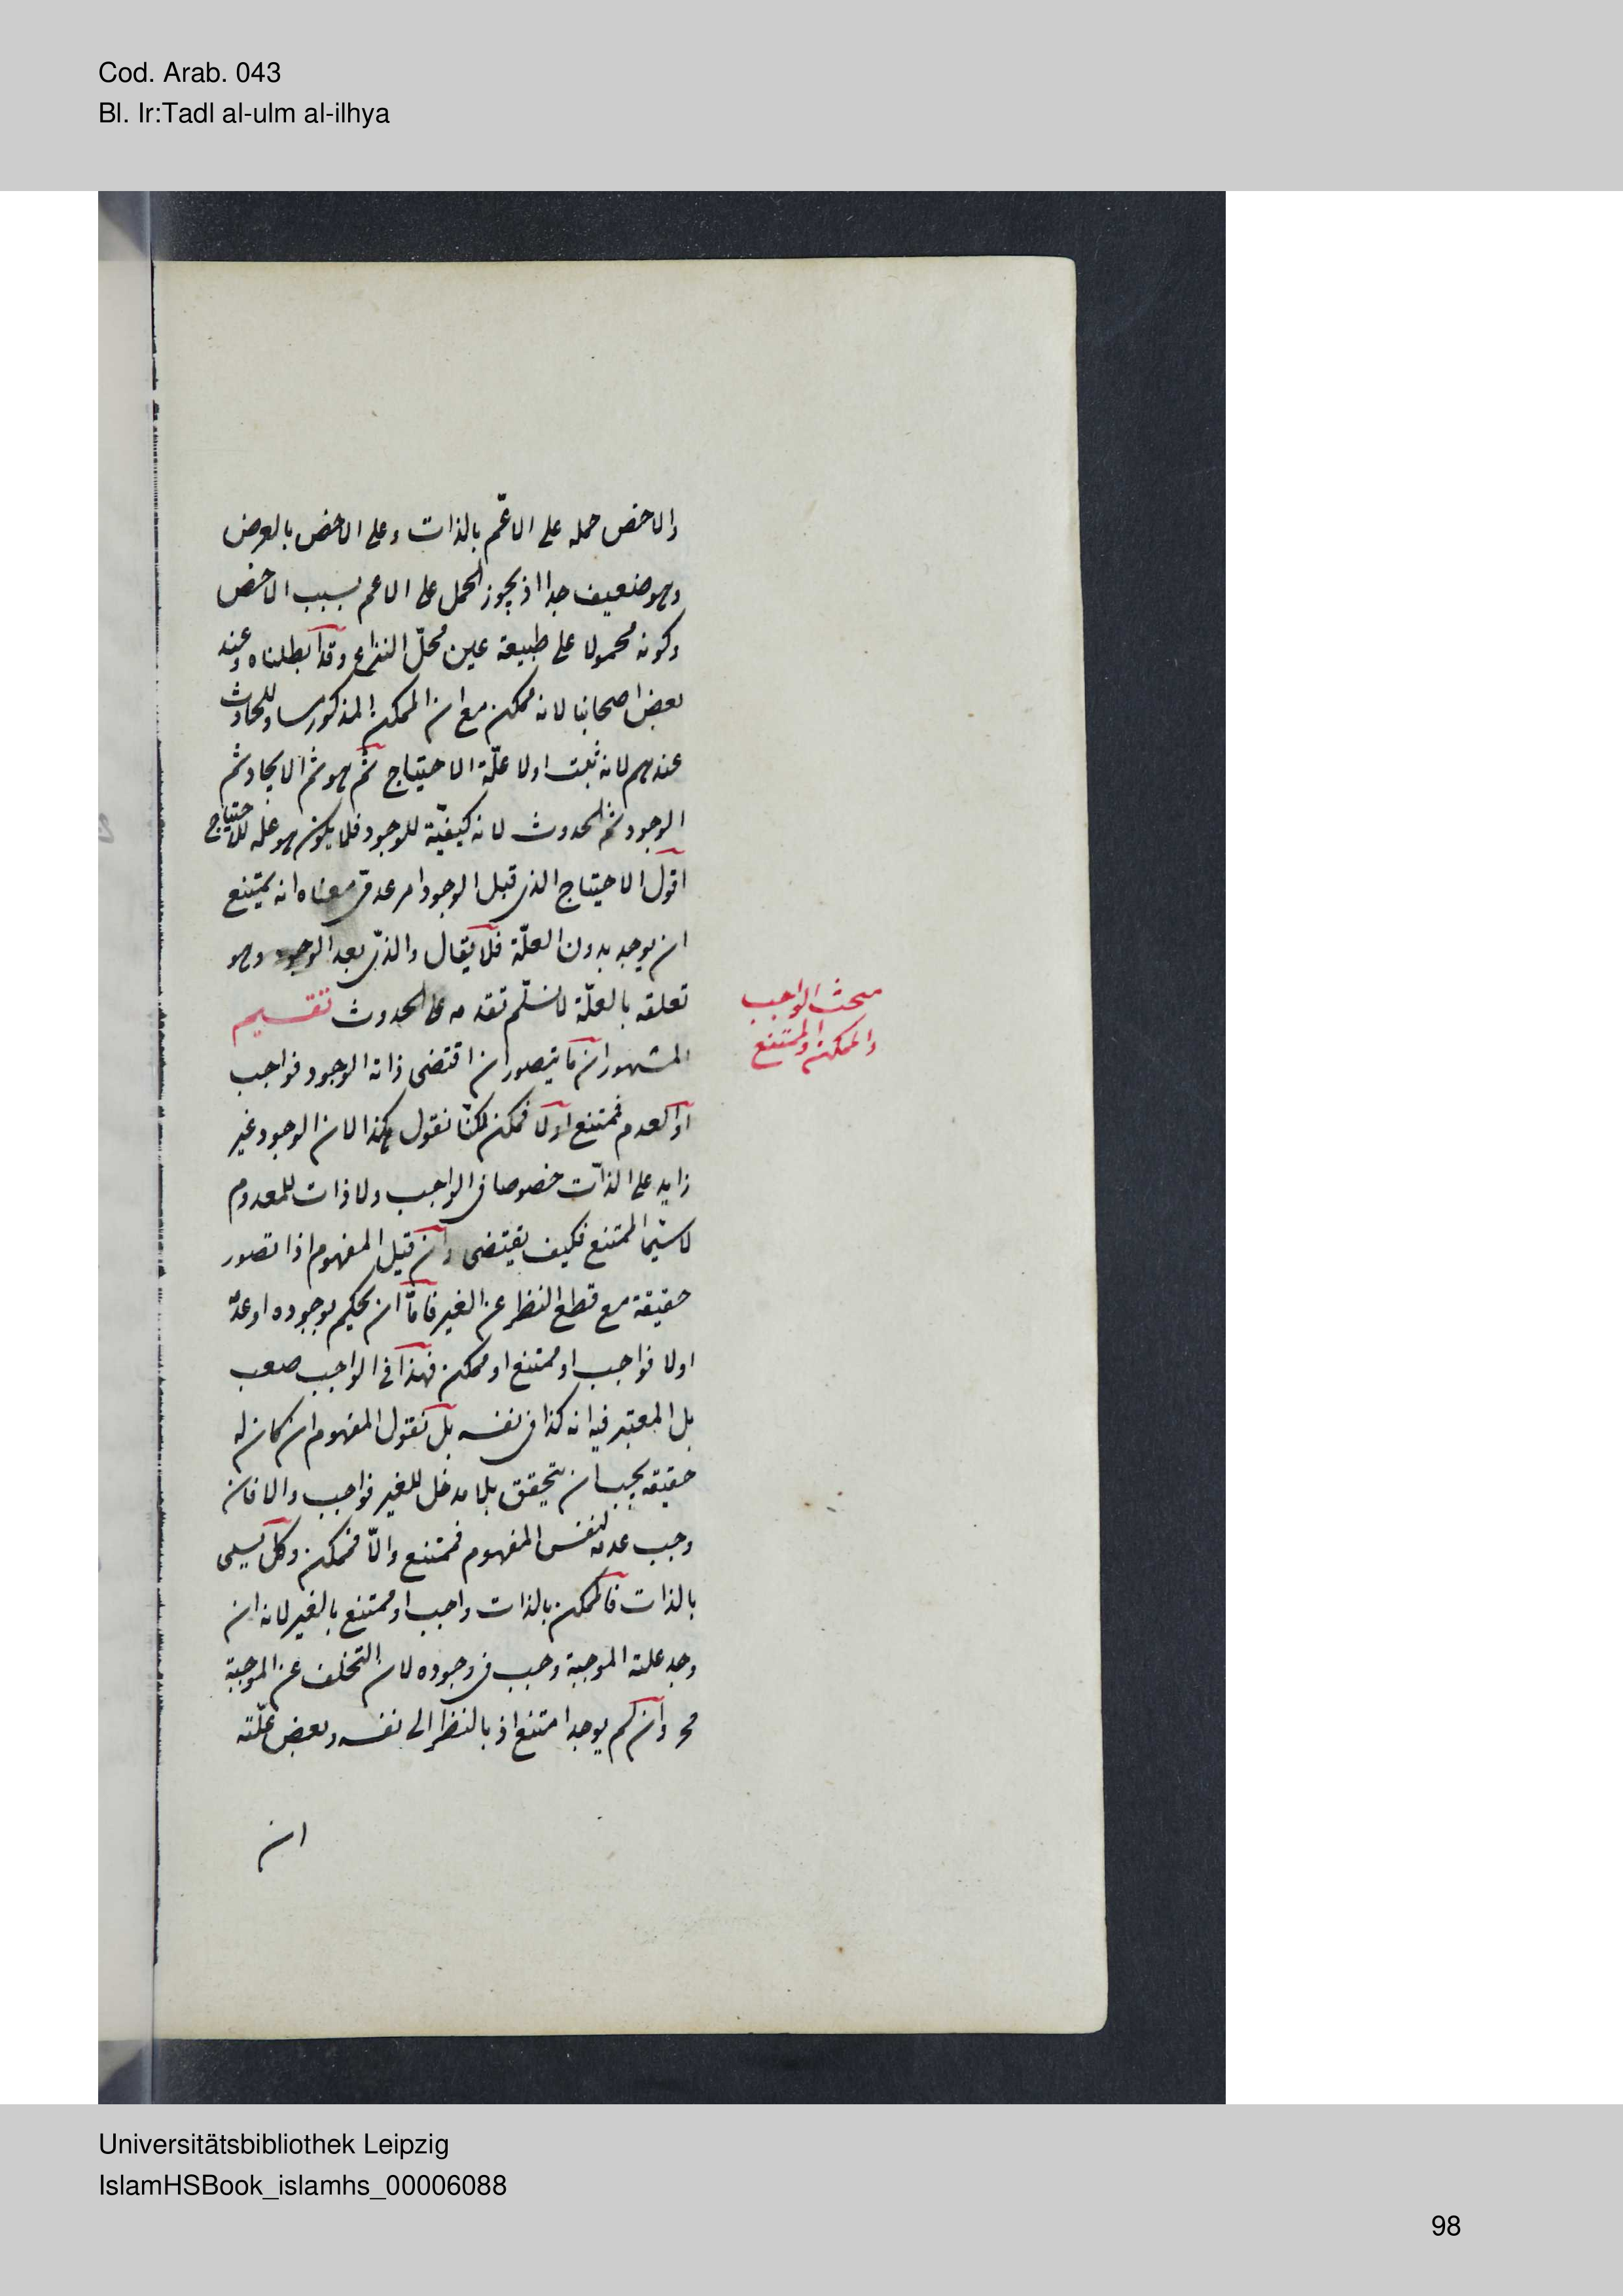 Cod. Arab. 043
Bl. Ir:Tadl al-ulm al-ilhya
والاخص حمله على الاعمّ بالذات وعلى الاخص بالعرض
وهو ضعيف جدا اذ يجوز الحمل على الاعم بسبب الاخص
وكونه محمولا على طبيعة عين محلّ النزاع وقد ابطلناه وعند
بعض اصحابنا لانه ممكن مع ان الممكن المذكور مساو للحادث
عندهم لانه ثبت اولا علّة الاحتياج ثم هو ثم الايجاد ثم
الوجود ثم الحدوث لانه كيفيّة للوجود فلا يكون هو علة للاحتياج
اقول الاحتياج الذى قبل الوجود امر عدمى معناه انه يمتنع
ان يوجد بدون العلّة فلا يقال والذى بعد الوجود وهو
تعلقه بالعلّة لا نسلّم تقدمه على الحدوث تقسيم
المشهور ان ما يتصور ان اقتضى ذاته الوجود فواجب
او العدم فممتنع اولا فممكن لكنّا نقول هكذا لان الوجود غير
زايد على الذات خصوصا فى الواجب ولا ذات للمعدوم
لا سيّما الممتنع فكيف يقتضى وان قيل المفهوم اذا تصور
حقيقة مع قطع النظر عن الغير فامّا ان يحكم بوجوده او عدمه
اولا فواجب او ممتنع او ممكن فهذا فى الواجب صعب
بل المعتبر فيه انه كذا فى نفسه بل نقول المفهوم ان كان له
حقيقة يجب ان يتحقق بلا مدخل للغير فواجب والا فان
وجب عدمه لنفس المفهوم فممتنع والّا فممكن وكل يسمى
بالذات فالممكن بالذات واجب او ممتنع بالغير لانه ان
وجد علته الموجبة وجب فى وجوده لان التخلف عن الموجبة
مح وان لم يوجد امتنع اذ بالنظر الى نفسه وبعض علّته
ان
مبحث الواجب
والممكن والممتنع
Universitätsbibliothek Leipzig
IslamHSBook_islamhs_00006088
98